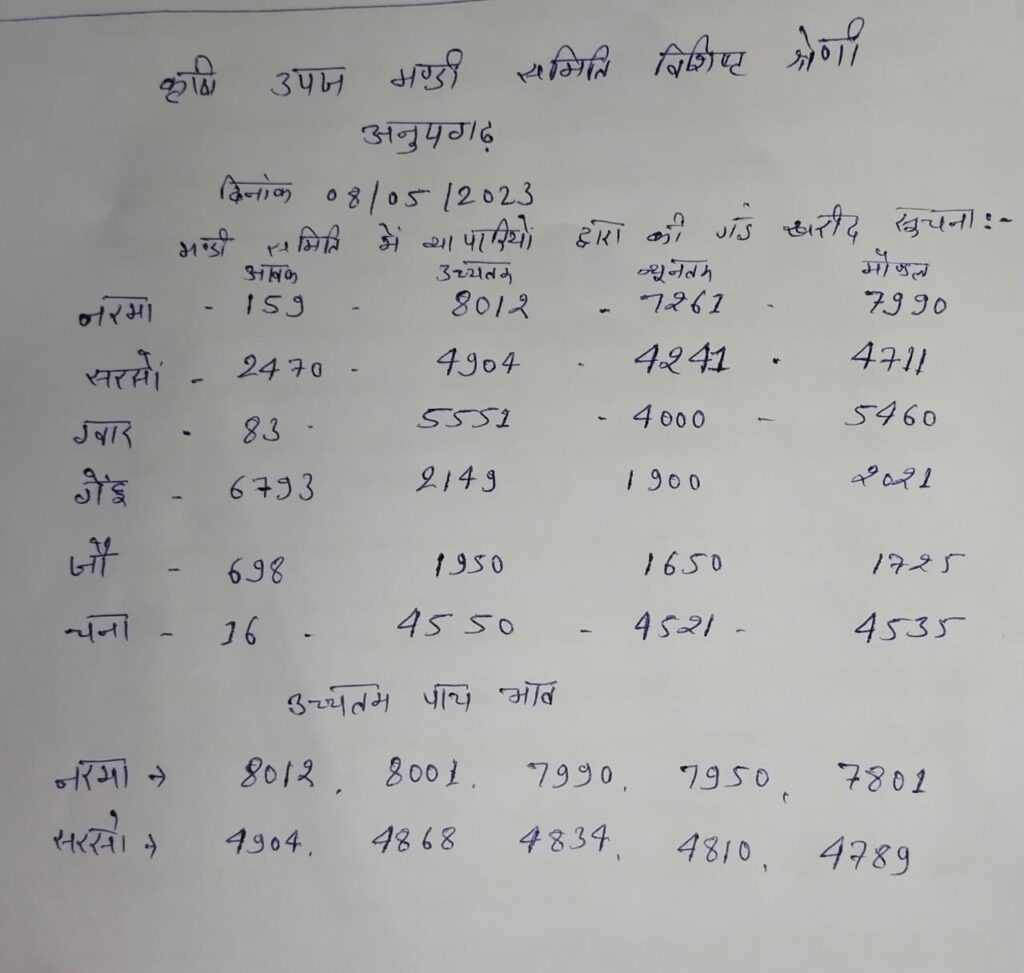 कृषि उपज मण्डी समिति विशिष्ट श्रेणी
अनुपगढ़
दिनांक 08/05/2023
मण्डी समिति में व्यापारियों द्वारा की गई खरीद सुचना :-
आवक उच्यतम न्यूनतम मौडल
नरमा - 159 - 8012 - 7261 - 7990
सरसों - 2470 - 4904 - 4241 - 4711
ग्वार - 83 - 5551 - 4000 - 5460
गेंहू - 6793 2149 1900 2021
जौ - 698 1950 1650 1725
चना - 16 - 4550 - 4521 - 4535
उच्यतम पाच भाव
नरमा → 8012, 8001, 7990, 7950, 7801
सरसो → 4904, 4868 4834, 4810, 4789